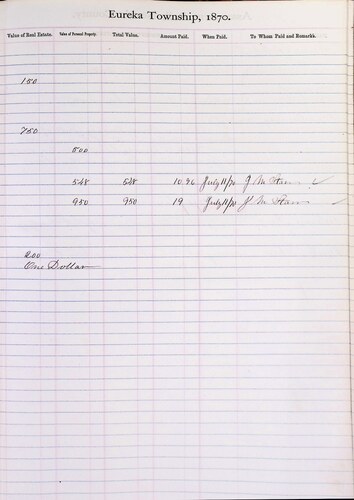 Eureka Township, 1870.
Value of Real Estate. Value of Personal Property. Total Value. Amount Paid. When Paid. To Whom Paid and Remarks.
150
750
500
548 548 10 96 July 11/70 J M
950 950 19 July 11/70 J M
200
One Dollar